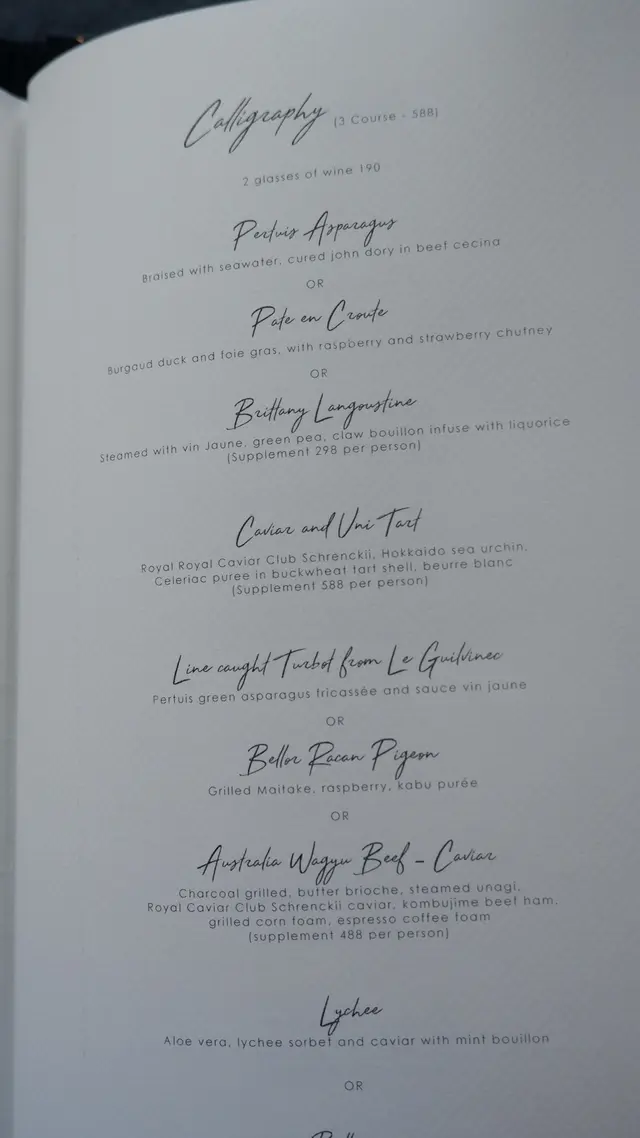 Calligraphy (3 Course - 588)
2 glasses of wine 190
Pertuis Asparagus
Braised with seawater, cured john dory in beef cecina
OR
Pate en Croute
Burgaud duck and foie gras, with raspberry and strawberry chutney
OR
Brittany Langoustine
Steamed with vin Jaune, green pea, claw bouillon infuse with liquorice
(Supplement 298 per person)
Caviar and Uni Tart
Royal Royal Caviar Club Schrenckii, Hokkaido sea urchin,
Celeriac puree in buckwheat tart shell, beurre blanc
(Supplement 588 per person)
Line caught Turbot from Le Guilvinec
Pertuis green asparagus fricassée and sauce vin jaune
OR
Bellor Racan Pigeon
Grilled Maitake, raspberry, kabu purée
OR
Australia Wagyu Beef - Caviar
Charcoal grilled, butter brioche, steamed unagi,
Royal Caviar Club Schrenckii caviar, kombujime beef ham,
grilled corn foam, espresso coffee foam
(supplement 488 per person)
Lychee
Aloe vera, lychee sorbet and caviar with mint bouillon
OR